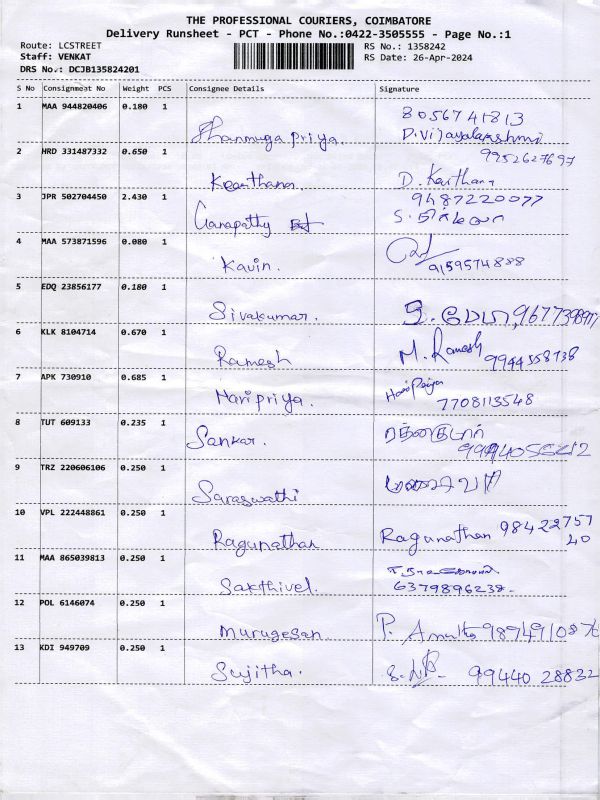 THE PROFESSIONAL COURIERS, COIMBATORE
Delivery Runsheet - PCT - Phone No.:0422-3505555 - Page No.:1
Route: LCSTREET RS No.: 1358242
Staff: VENKAT RS Date: 26-Apr-2024
DRS No.: DCJB135824201
S No Consignment No Weight PCS Consignee Details Signature
1 MAA 944820406 0.180 1 8056741813
Shanmuga priya. D.Vijayalakshmi
2 HRD 331487332 0.650 1 9952627697
Keerthana D. Keerthana
3 JPR 502704450 2.430 1 9487220077
Ganapathy S.
4 MAA 573871596 0.080 1
Kavin. 9159574888
5 EDQ 23856177 0.180 1
Sivakumar.
6 KLK 8104714 0.670 1
Ramesh M. Ramesh 9944358738
7 APK 730910 0.685 1 Hari Priya
Haripriya. 7708113548
8 TUT 609133 0.235 1 ரத்னகுமார்
Sankar.
9 TRZ 220606106 0.250 1
Saraswathi
10 VPL 222448861 0.250 1 9842275740
Ragunathan Ragunathan
11 MAA 865039813 0.250 1
Sakthivel. 6379896238-
12 POL 6146074 0.250 1
Murugesan P.
13 KDI 949709 0.250 1
Sujitha. 99440 28832